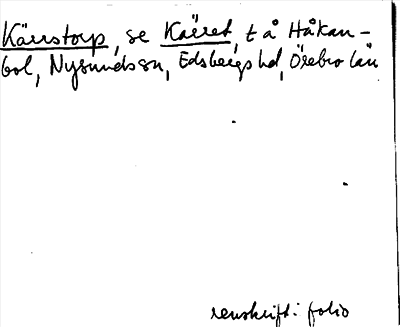 Kärrstorp, se Kärret, t å Håkan-
bol, Nysunds sn, Edsbergs hd, Örebro län
renskrift i folio